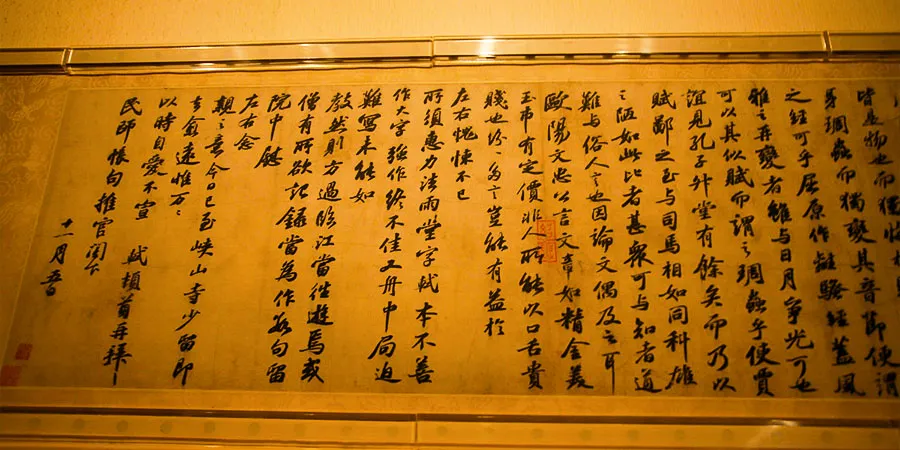 皆是物也而獨
身琱蟲而獨變其音節便謂
之經可乎屈原作離騷經蓋風
雅之再變者雖與日月爭光可也
可以其似賦而謂之琱蟲乎使賈
誼見孔子升堂有餘矣而乃以
賦鄙之至與司馬相如同科雄
之陋如此比者甚衆可與知者道
難與俗人言也因論文偶及之耳
歐陽文忠公言文章如精金美
玉市有定價非人所能以口舌貴
賤也紛紛多言豈能有益於
左右愧悚不已
所須惠力法雨堂字軾本不善
作大字強作終不佳又舟中局迫
難寫未能如
教然則方過臨江當往遊焉或
僧有所欲記錄當為作數句留
院中慰
左右念
親之意今日已至峽山寺少留即
去愈遠惟萬萬
以時自愛不宣 軾頓首再拜
民師帳句推官閣下
十一月五日